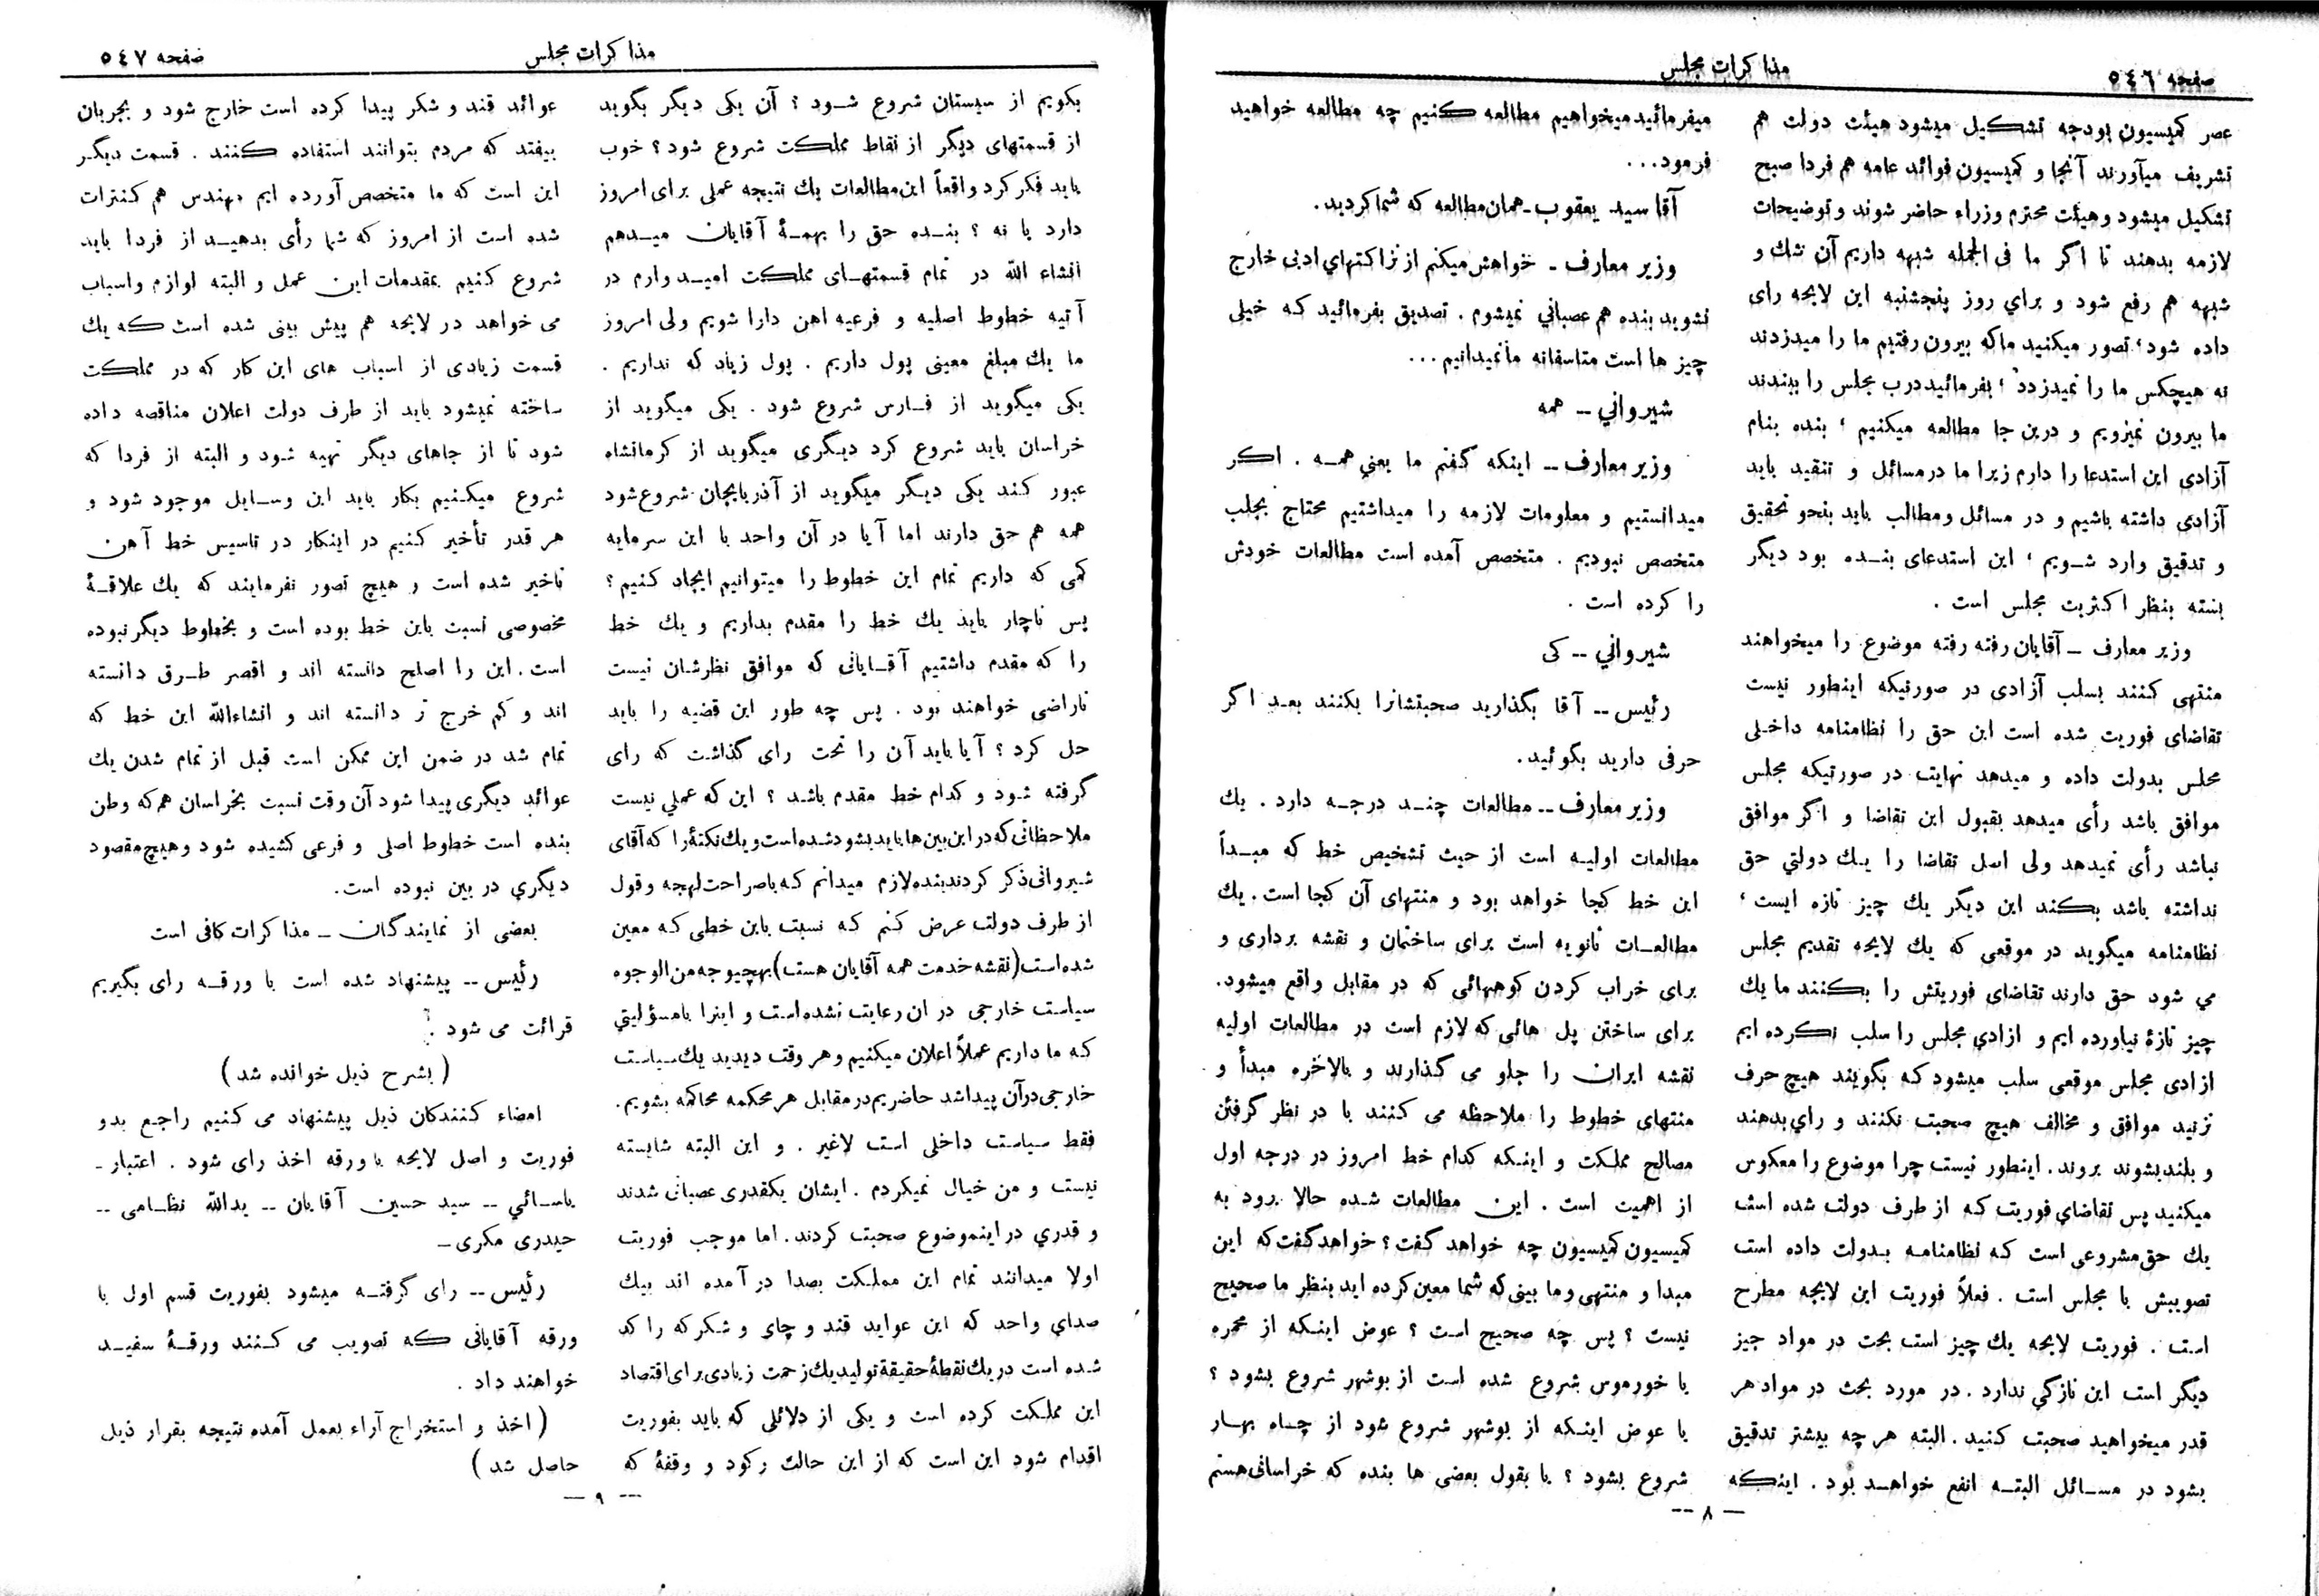 صفحه ٥٤٦
مذاكرات مجلس
عصر كميسيون بودجه تشكيل ميشود هيئت دولت هم
تشريف ميآورند آنجا و كميسيون فوائد عامه هم فردا صبح
تشكيل ميشود وهيئت محترم وزراء حاضر شوند وتوضيحات
لازمه بدهند تا اگر ما فی الجمله شبهه داريم آن شك و
شبهه هم رفع شود و براي روز پنجشنبه اين لايحه رای
داده شود، تصور ميكنيد ماكه بيرون رفتيم ما را ميدزدند
نه هيچكس ما را نميدزدد، بفرمائيد درب مجلس را ببندند
ما بيرون نميرويم و درين جا مطالعه ميكنيم، بنده بنام
آزادی اين استدعا را دارم زيرا ما درمسائل و تنقيد بايد
آزادي داشته باشيم و در مسائل ومطالب بايد بنحو تحقيق
و تدقيق وارد شـويم، اين استدعای بنـده بود ديگر
بسته بنظر اكثريت مجلس است .
وزير معارف ـ آقايان رفته رفته موضوع را ميخواهند
منتهی كنند بسلب آزادی در صورتيكه اينطور نيست
تقاضای فوريت شده است اين حق را نظامنامه داخلی
مجلس بدولت داده و ميدهد نهايت در صورتيكه مجلس
موافق باشد رأی ميدهد بقبول اين تقاضا و اگر موافق
نباشد رأی نميدهد ولی اصل تقاضا را يك دولتي حق
نداشته باشد بكند اين ديگر يك چيز تازه ايست،
نظامنامه ميگويد در موقعی كه يك لايحه تقديم مجلس
می شود حق دارند تقاضای فوريتش را بكنند ما يك
چيز تازۀ نياورده ايم و ازادي مجلس را سلب نكرده ايم
ازادی مجلس موقعی سلب ميشود كه بگويند هيچ حرف
نزنيد موافق و مخالف هيچ صحبت نكنند و راي بدهند
و بلند بشوند بروند. اينطور نيست چرا موضوع را معكوس
ميكنيد پس تقاضاي فوريت كه از طرف دولت شده است
يك حق مشروعی است كه نظامنامه بدولت داده است
تصويبش با مجلس است . فعلاً فوريت اين لايحه مطرح
است . فوريت لايحه يك چيز است بحث در مواد چيز
ديگر است اين تازگي ندارد . در مورد بحث در مواد هر
قدر ميخواهيد صحبت كنيد . البته هر چه بيشتر تدقيق
بشود در مسـائل البتـه انفع خواهـد بود . اينكه
ميفرمائيد ميخواهيم مطالعه كنيم چه مطالعه خواهيد
فرمود...
آقا سيد يعقوب ـ همان مطالعه كه شما كرديد.
وزير معارف ـ خواهش ميكنم از نزاكتهاي ادبی خارج
نشويد بنده هم عصباني نميشوم . تصديق بفرمائيد كه خيلی
چيز ها است متاسفانه ما نميدانيم...
شيرواني -- همه
وزير معارف -- اينكه گفتم ما يعني همـه . اگر
ميدانستيم و معلومات لازمه را ميداشتيم محتاج بجلب
متخصص نبوديم . متخصص آمده است مطالعات خودش
را كرده است .
شيرواني -- كی
رئيس -- آقا بگذاريد صحبتشانرا بكنند بعد اگر
حرفی داريد بگوئيد.
وزير معارف -- مطالعات چنـد درجـه دارد . يك
مطالعات اوليـه است از حيث تشخيص خط كه مبـدأ
اين خط كجا خواهد بود و منتهای آن كجا است . يك
مطالعـات ثانويه است برای ساختمان و نقشه برداری و
برای خراب كردن كوههائی كه در مقابل واقع ميشود.
برای ساختن پل هائی كه لازم است در مطالعات اوليه
نقشه ايران را جلو می گذارند و بالاخره مبدأ و
منتهای خطوط را ملاحظه می كنند با در نظر گرفتن
مصالح مملكت و اينكه كدام خط امروز در درجه اول
از اهميت است . اين مطالعات شده حالا برود به
كميسيون كميسيون چه خواهد گفت؟ خواهد گفت كه اين
مبدا و منتهی وما بينی كه شما معين كرده ايد بنظر ما صحيح
نيست ؟ پس چه صحيح است ؟ عوض اينكه از محمره
يا خورموس شروع شده است از بوشهر شروع بشود ؟
يا عوض اينكه از بوشهر شروع شود از چـاه بهـار
شروع بشود ؟ يا بقول بعضی ها بنده كه خراسانی هستم
— ٨ --
صفحه ٥٤٧
مذاكرات مجلس
بگويم از سيستان شروع شـود ؟ آن يكی ديگر بگويد
از قسمتهای ديگر از نقاط مملكت شروع شود ؟ خوب
بايد فكر كرد واقعاً اين مطالعات يك نتيجه عملی برای امروز
دارد يا نه ؟ بنـده حق را بهمـۀ آقايان ميـدهم
انشاء الله در تمام قسمتهـای مملكت اميـد وارم در
آتيه خطوط اصليه و فرعيه اهن دارا شويم ولی امروز
ما يك مبلغ معينی پول داريم . پول زياد كه نداريم .
يكی ميگويد از فـارس شروع شود . يكی ميگويد از
خراسان بايد شروع كرد ديگری ميگويد از كرمانشاه
عبور كند يكی ديگر ميگويد از آذربايجان شروع شود
همه هم حق دارند اما آيا در آن واحد با اين سرمايه
كمی كه داريم تمام اين خطوط را ميتوانيم ايجاد كنيم؟
پس ناچار بايد يك خط را مقدم بداريم و يك خط
را كه مقدم داشتيم آقـايانی كه موافق نظرشان نيست
ناراضی خواهند بود . پس چه طور اين قضيه را بايد
حل كرد ؟ آيا بايد آن را تحت رای گذاشت كه رای
گرفته شود و كدام خط مقدم باشد ؟ اين كه عملي نيست
ملاحظاتی كه در اين بين ها بايد بشود شده است و يك نكتۀ را كه آقای
شيروانی ذكر كردند بنده لازم ميدانم كه با صراحت لهجه و قول
از طرف دولت عرض كنم كه نسبت باين خطی كه معين
شده است (نقشه خدمت همه آقايان هست) بهچيوجه من الوجوه
سياست خارجی در ان رعايت نشده است و اينرا با مسؤليتي
كه ما داريم عملاً اعلان ميكنيم و هر وقت ديديد يك سياست
خارجی در آن پيدا شد حاضريم در مقابل هر محكمه محاكمه بشويم.
فقط سياست داخلی است لاغير . و اين البته شايسته
نيست و من خيال نميكردم . ايشان يكقدری عصبانی شدند
و قدري در اينموضوع صحبت كردند. اما موجب فوريت
اولا ميدانند تمام اين مملكت بصدا در آمده اند بيك
صداي واحد كه اين عوايد قند و چای و شكر كه راكد
شده است در يك نقطۀ حقيقة توليد يك زحمت زيادی برای اقتصاد
اين مملكت كرده است و يكی از دلائلی كه بايد بفوريت
اقدام شود اين است كه از اين حالت ركود و وقفۀ كه
عوائد قند و شكر پيدا كرده است خارج شود و بجريان
بيفتد كه مردم بتوانند استفاده كنند . قسمت ديگر
اين است كه ما متخصص آورده ايم مهندس هم كنترات
شده است از امروز كه شما رأی بدهيـد از فردا بايد
شروع كنيم بمقدمات اين عمل و البته لوازم واسباب
می خواهد در لايحه هم پيش بينی شده است كه يك
قسمت زيادی از اسباب های اين كار كه در مملكت
ساخته نميشود بايد از طرف دولت اعلان مناقصه داده
شود تا از جاهای ديگر تهيه شود و البته از فردا كه
شروع ميكنيم بكار بايد اين وسـايل موجود شود و
هر قدر تأخير كنيم در اينكار در تاسيس خط آهن
تاخير شده است و هيچ تصور نفرمايند كه يك علاقـۀ
مخصوصی نسبت باين خط بوده است و بخطوط ديگر نبوده
است . اين را اصلح دانسته اند و اقصر طـرق دانسته
اند و كم خرج تر دانسته اند و انشاءالله اين خط كه
تمام شد در ضمن اين ممكن است قبل از تمام شدن يك
عوائد ديگری پيدا شود آن وقت نسبت بخراسان هم كه وطن
بنده است خطوط اصلی و فرعی كشيده شود وهيچ مقصود
ديگري در بين نبوده است.
بعضی از نمايندگان ـ مذاكرات كافی است
رئيس -- پيشنهاد شده است با ورقـه رای بگيريم
قرائت می شود .
( بشرح ذيل خوانده شد )
امضاء كنندكان ذيل پيشنهاد می كنيم راجع بدو
فوريت و اصل لايحه با ورقه اخذ رای شود . اعتبار ـ
ياسـائي -- سيد حسين آقايان -- يدالله نظـامی --
حيدری مكری ـ
رئيس -- رای گرفتـه ميشود بفوريت قسم اول با
ورقه آقايانی كه تصويب می كـنند ورقـۀ سفيـد
خواهند داد .
( اخذ و استخراج آراء بعمل آمده نتيجه بقرار ذيل
حاصل شد )
--- ٩ —